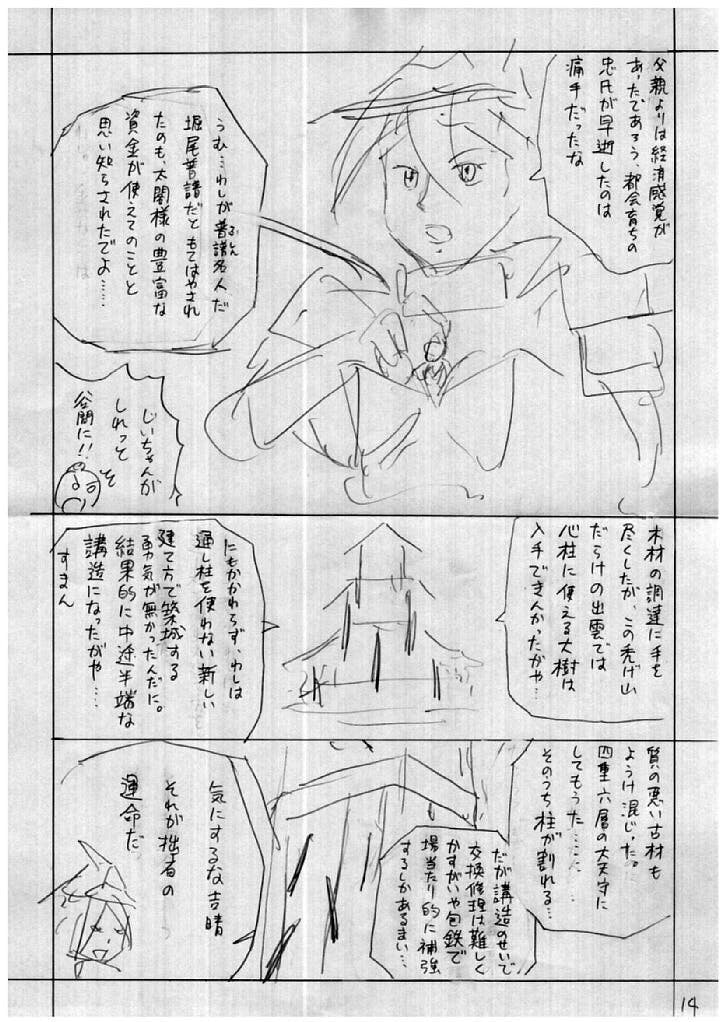 父親よりは経済感覚が
あったであろう、都会育ちの
忠氏が早逝したのは
痛手だったな
うむ…わしが普請名人だ
ふしん
堀尾普請だともてはやされ
たのも、太閤様の豊富な
資金が使えてのことと
思い知らされたでよ……
じいちゃんが
しれっと
谷間に!!
木材の調達に手を
尽くしたが、この禿げ山
だらけの出雲では
心柱に使える大樹は
入手できんかったがや…
にもかかわらず、わしは
通し柱を使わない新しい
建て方で築城する
勇気が無かったんだに。
結果的に中途半端な
講造になったがや…
すまん
質の悪い古材も
ようけ混じった。
四重六層の大天守に
してもうた……
そのうち柱が割れる…
だが講造のせいで
交換修理は難しく
かすがいや包鉄で
場当たり的に補強
するしかあるまい…
気にするな吉晴
それが拙者の
運命だ
14